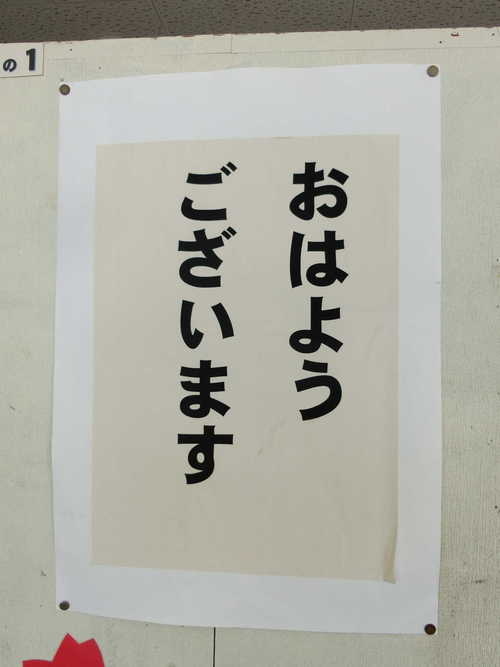 おはよう
ございます
の1